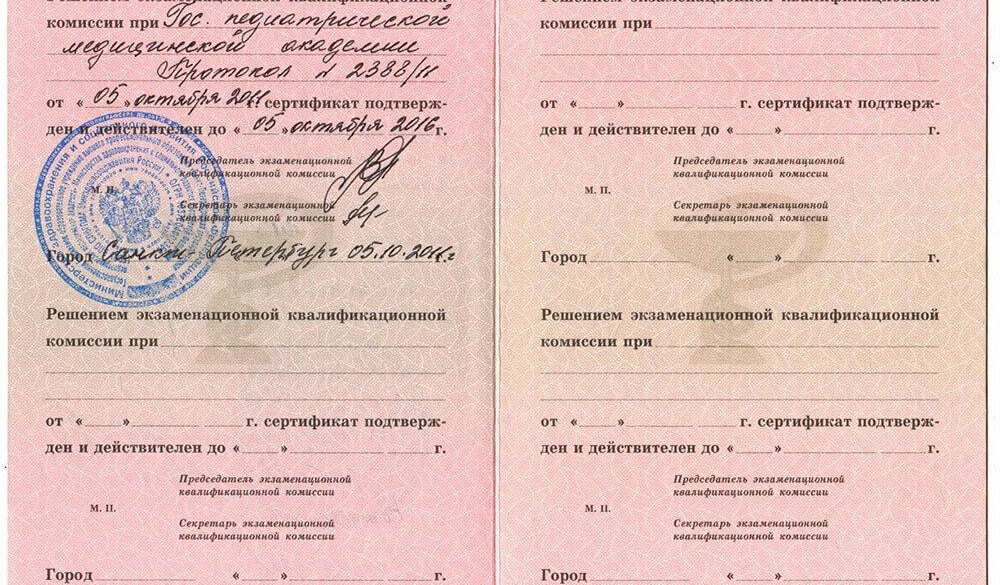 Решением экзаменационной квалификационной
комиссии при Гос. педиатрической
медицинской академии
Протокол N 2388/11
от «05» октября 2011 г. сертификат подтверж-
ден и действителен до «05» октября 2016 г.
Председатель экзаменационной
квалификационной комиссии
М. П.
Секретарь экзаменационной
квалификационной комиссии
Город Санкт-Петербург 05.10.2011 г.
Решением экзаменационной квалификационной
комиссии при
от « » г. сертификат подтверж-
ден и действителен до « » г.
Председатель экзаменационной
квалификационной комиссии
М. П.
Секретарь экзаменационной
квалификационной комиссии
Город « » г.
комиссии при
от « » г. сертификат подтверж-
ден и действителен до « » г.
Председатель экзаменационной
квалификационной комиссии
М. П.
Секретарь экзаменационной
квалификационной комиссии
Город « » г.
Решением экзаменационной квалификационной
комиссии при
от « » г. сертификат подтверж-
ден и действителен до « » г.
Председатель экзаменационной
квалификационной комиссии
М. П.
Секретарь экзаменационной
квалификационной комиссии
Город « » г.